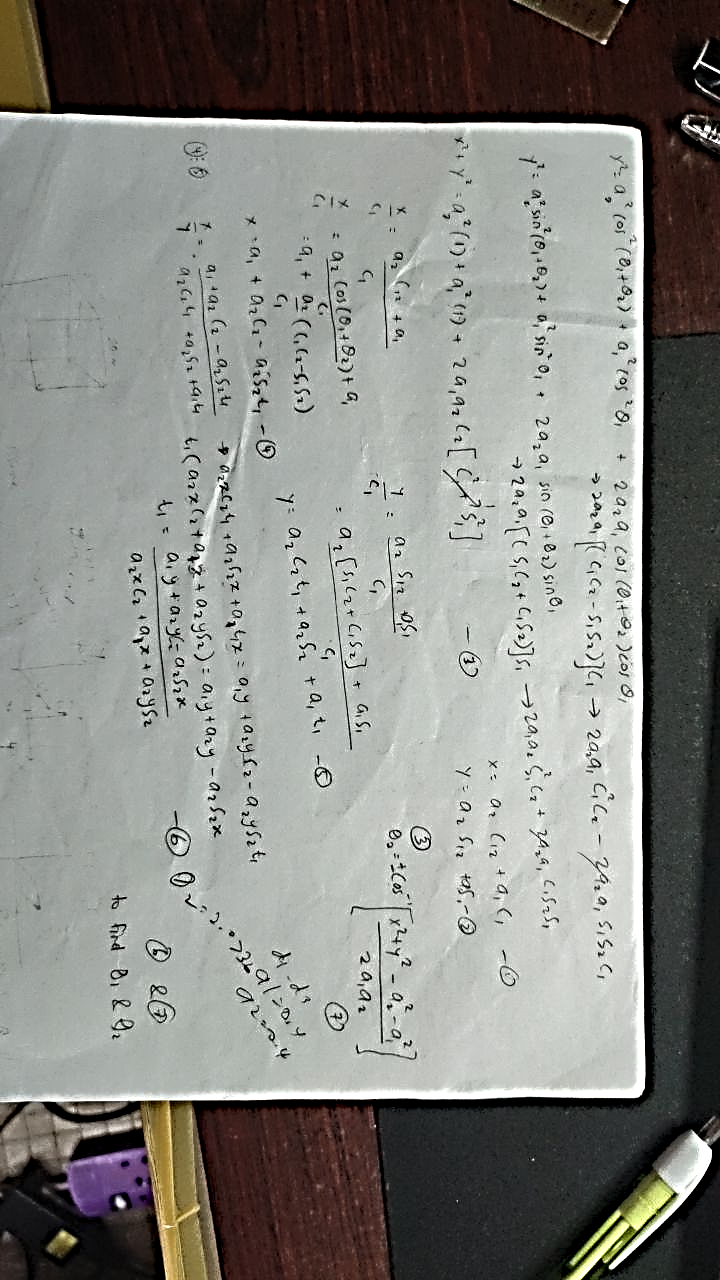 x² = a₂² cos²(θ₁+θ₂) + a₁² cos²θ₁ + 2a₂a₁ cos(θ₁+θ₂)cosθ₁
→ 2a₂a₁[(c₁c₂-s₁s₂)]c₁ → 2a₂a₁ c₁²c₂ - 2a₂a₁ s₁s₂c₁
y² = a₂² sin²(θ₁+θ₂) + a₁² sin²θ₁ + 2a₂a₁ sin(θ₁+θ₂)sinθ₁
→ 2a₂a₁[(s₁c₂+c₁s₂)]s₁ → 2a₁a₂ s₁²c₂ + 2a₂a₁ c₁s₂s₁
x²+y² = a₂²(1) + a₁²(1) + 2a₁a₂c₂[c₁²+s₁²] 1 -③
x = a₂c₁₂ + a₁c₁ -①
y = a₂s₁₂ + a₁s₁ -②
x/c₁ = a₂c₁₂/c₁ + a₁
x/c₁ = a₂cos(θ₁+θ₂)/c₁ + a₁
= a₁ + a₂/c₁ (c₁c₂-s₁s₂)
x = a₁ + a₂c₂ - a₂s₂t₁ -④
y/c₁ = a₂s₁₂ + a₁s₁ / c₁
= a₂[s₁c₂+c₁s₂] + a₁s₁ / c₁
y = a₂c₂t₁ + a₂s₂ + a₁t₁ -⑤
③
θ₂ = ±cos⁻¹[x²+y²-a₂²-a₁² / 2a₁a₂] ⑦
④:⑤
x/y = a₁+a₂c₂-a₂s₂t₁ / a₂c₂t₁+a₂s₂+a₁t₁
→ a₂xc₂t₁ + a₂s₂x + a₁t₁x = a₁y + a₂yc₂ - a₂ys₂t₁
t₁(a₂xc₂+a₁x+a₂ys₂) = a₁y+a₂y - a₂s₂x
t₁ = a₁y+a₂y-a₂s₂x / a₂xc₂+a₁x+a₂ys₂ -⑥
a1=0.4
a2=0.4
⑥ & ⑦
to find θ₁ & θ₂